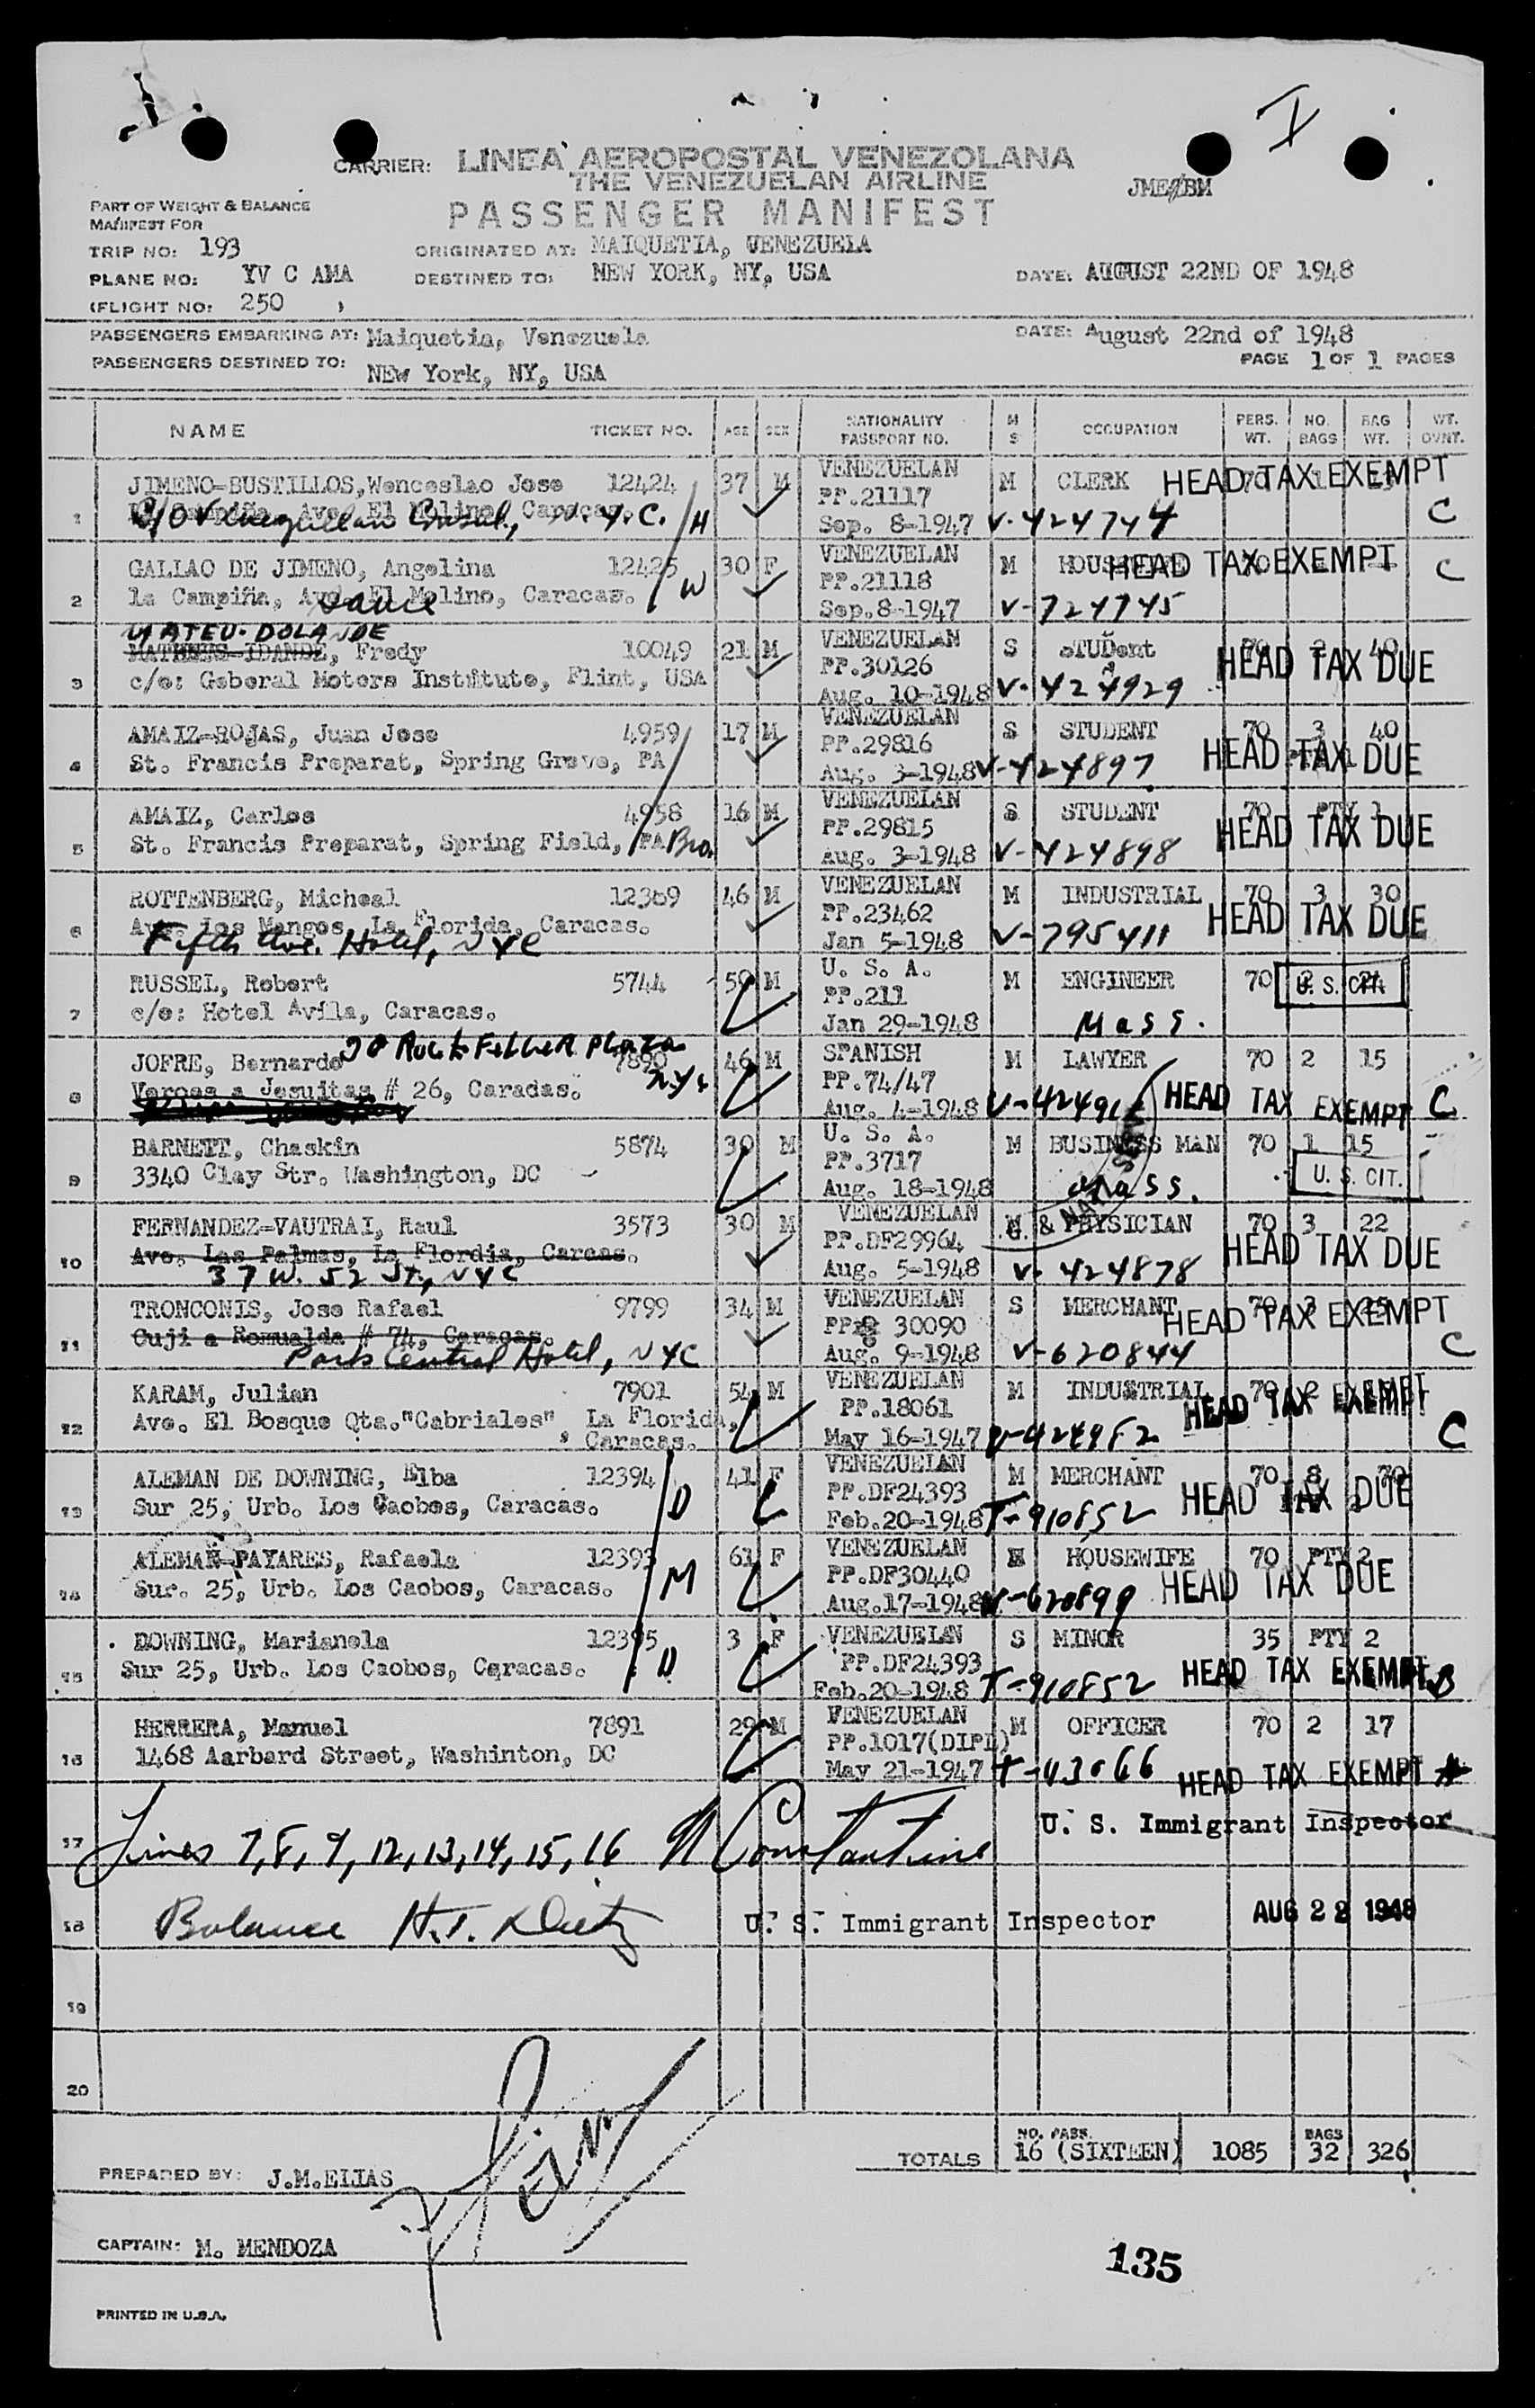 I
CARRIER: LINEA AEROPOSTAL VENEZOLANA
THE VENEZUELAN AIRLINE
JME/BM
PART OF WEIGHT & BALANCE
MANIFEST FOR
PASSENGER MANIFEST
TRIP NO: 193
ORIGINATED AT: MAIQUETIA, VENEZUELA
PLANE NO: YV C AMA
DESTINED TO: NEW YORK, NY, USA
DATE: AUGUST 22ND OF 1948
(FLIGHT NO: 250 )
PASSENGERS EMBARKING AT: Maiquetia, Venezuela
DATE: August 22nd of 1948
PASSENGERS DESTINED TO: NEw York, NY, USA
PAGE 1 OF 1 PAGES
NAME TICKET NO. AGE SEX NATIONALITY PASSPORT NO. M S OCCUPATION PERS. WT. NO. BAGS BAG WT. WT. OVNT.
JIMENO-BUSTILLOS, Wenceslao Jose 12424 37 M VENEZUELAN M CLERK 70 HEAD TAX EXEMPT
PP.21117
1 C/O Venezuelan Consul, N.Y.C. H Sep. 8-1947 V-424744 C
GALLAO DE JIMENO, Angelina 12425 30 F VENEZUELAN M HOUSEWIFE 70 HEAD TAX EXEMPT C
PP.21118
2 la Campiña, Avd. El Molino, Caracas. same W Sep.8-1947 V-724745
MATEU-DOLANDE
MATHEUS-IDANDE, Fredy 10049 21 M VENEZUELAN S STUDent 70 2 40
PP.30126 HEAD TAX DUE
3 c/o: Geberal Motors Institute, Flint, USA Aug. 10-1948 V-424929
AMAIZ-ROJAS, Juan Jose 4959 17 M VENEZUELAN S STUDENT 70 3 40
PP.29816 HEAD TAX DUE
4 St. Francis Preparat, Spring Grove, PA Aug. 3-1948 V-424897
AMAIZ, Carlos 4958 16 M VENEZUELAN S STUDENT 70 PTY 1
PP.29815 HEAD TAX DUE
5 St. Francis Preparat, Spring Field, PA Bro. Aug. 3-1948 V-424898
ROTTENBERG, Micheal 12369 46 M VENEZUELAN M INDUSTRIAL 70 3 30
PP.23462 HEAD TAX DUE
6 Ave. Los Mangos, La Florida, Caracas. Jan 5-1948 V-795411
Fifth Ave. Hotel, NYC
RUSSEL, Robert 5744 50 M U. S. A. M ENGINEER 70 U. S. CIT.
PP.211
7 c/o: Hotel Avila, Caracas. Jan 29-1948 Mass.
JOFRE, Bernardo 30 Rockefeller Plaza N.Y. 7890 46 M SPANISH M LAWYER 70 2 15
PP.74/47
8 Veroes a Jesuitas # 26, Caradas. Aug. 4-1948 HEAD TAX EXEMPT C
BARNETT, Chaskin 5874 30 M U. S. A. M BUSINESS MAN 70 1 15
PP.3717
9 3340 Clay Str. Washington, DC Aug. 18-1948 Mass. U. S. CIT.
FERNANDEZ-VAUTRAI, Raul 3573 30 M VENEZUELAN M PHYSICIAN 70 3 22
PP.DF29964 HEAD TAX DUE
10 Ave. Las Palmas, La Flordia, Carcas. Aug. 5-1948 V-424878
37 W. 52 St., NYC
TRONCONIS, Jose Rafael 9799 34 M VENEZUELAN S MERCHANT 70 3 25
PP. 30090 HEAD TAX EXEMPT
11 Cuji a Romualda # 74, Caracas. Aug. 9-1948 V-620844 C
Park Central Hotel, NYC
KARAM, Julian 7901 54 M VENEZUELAN M INDUSTRIAL 70 2
PP.18061 HEAD TAX EXEMPT
12 Ave. El Bosque Qta."Cabriales", La Florida, Caracas. May 16-1947 V-424952 C
ALEMAN DE DOWNING, Elba 12394 41 F VENEZUELAN M MERCHANT 70 8 70
PP.DF24393 HEAD TAX DUE
13 Sur 25, Urb. Los Caobos, Caracas. D Feb.20-1948 T-910852
ALEMAN-PAYARES, Rafaela 12393 61 F VENEZUELAN HOUSEWIFE 70 PTY 2
PP.DF30440 HEAD TAX DUE
14 Sur. 25, Urb. Los Caobos, Caracas. M Aug.17-1948 V-620899
DOWNING, Marianela 12395 3 F VENEZUELAN S MINOR 35 PTY 2
PP.DF24393 HEAD TAX EXEMPT B
15 Sur 25, Urb. Los Caobos, Caracas. D Feb.20-1948 T-910852
HERRERA, Manuel 7891 29 M VENEZUELAN M OFFICER 70 2 17
PP.1017(DIPL)
16 1468 Aarbard Street, Washinton, DC May 21-1947 T-43066 HEAD TAX EXEMPT A
U. S. Immigrant Inspector
17 Lines 7,8,9,12,13,14,15,16 N Constantine
18 Balance H.T. U. S. Immigrant Inspector AUG 22 1948
19
20
TOTALS NO. PASS. 16 (SIXTEEN) 1085 BAGS 32 326
PREPARED BY: J.M.ELIAS
CAPTAIN: M. MENDOZA
135
PRINTED IN U.S.A.